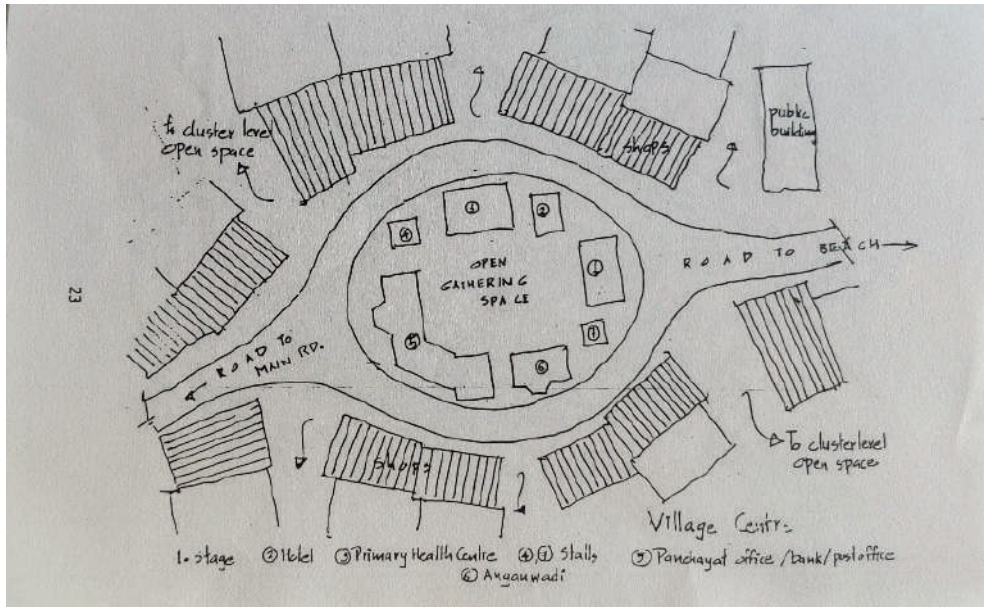 To cluster level
open space
SHOPS
public
building
①
②
④
①
OPEN
GATHERING
SPACE
ROAD TO BEACH
23
⑤
⑦
⑥
ROAD TO
MAIN RD.
SHOPS
To cluster level
open space
Village Centre
1. stage ② Hotel ③ Primary Health Centre ④,⑦ Stalls ⑤ Panchayat office /bank/post office
⑥ Anganwadi